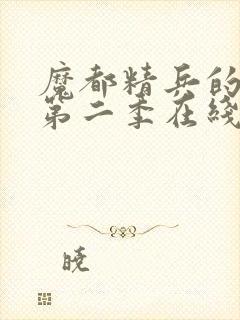 魔都精兵的
第二季在线
晓